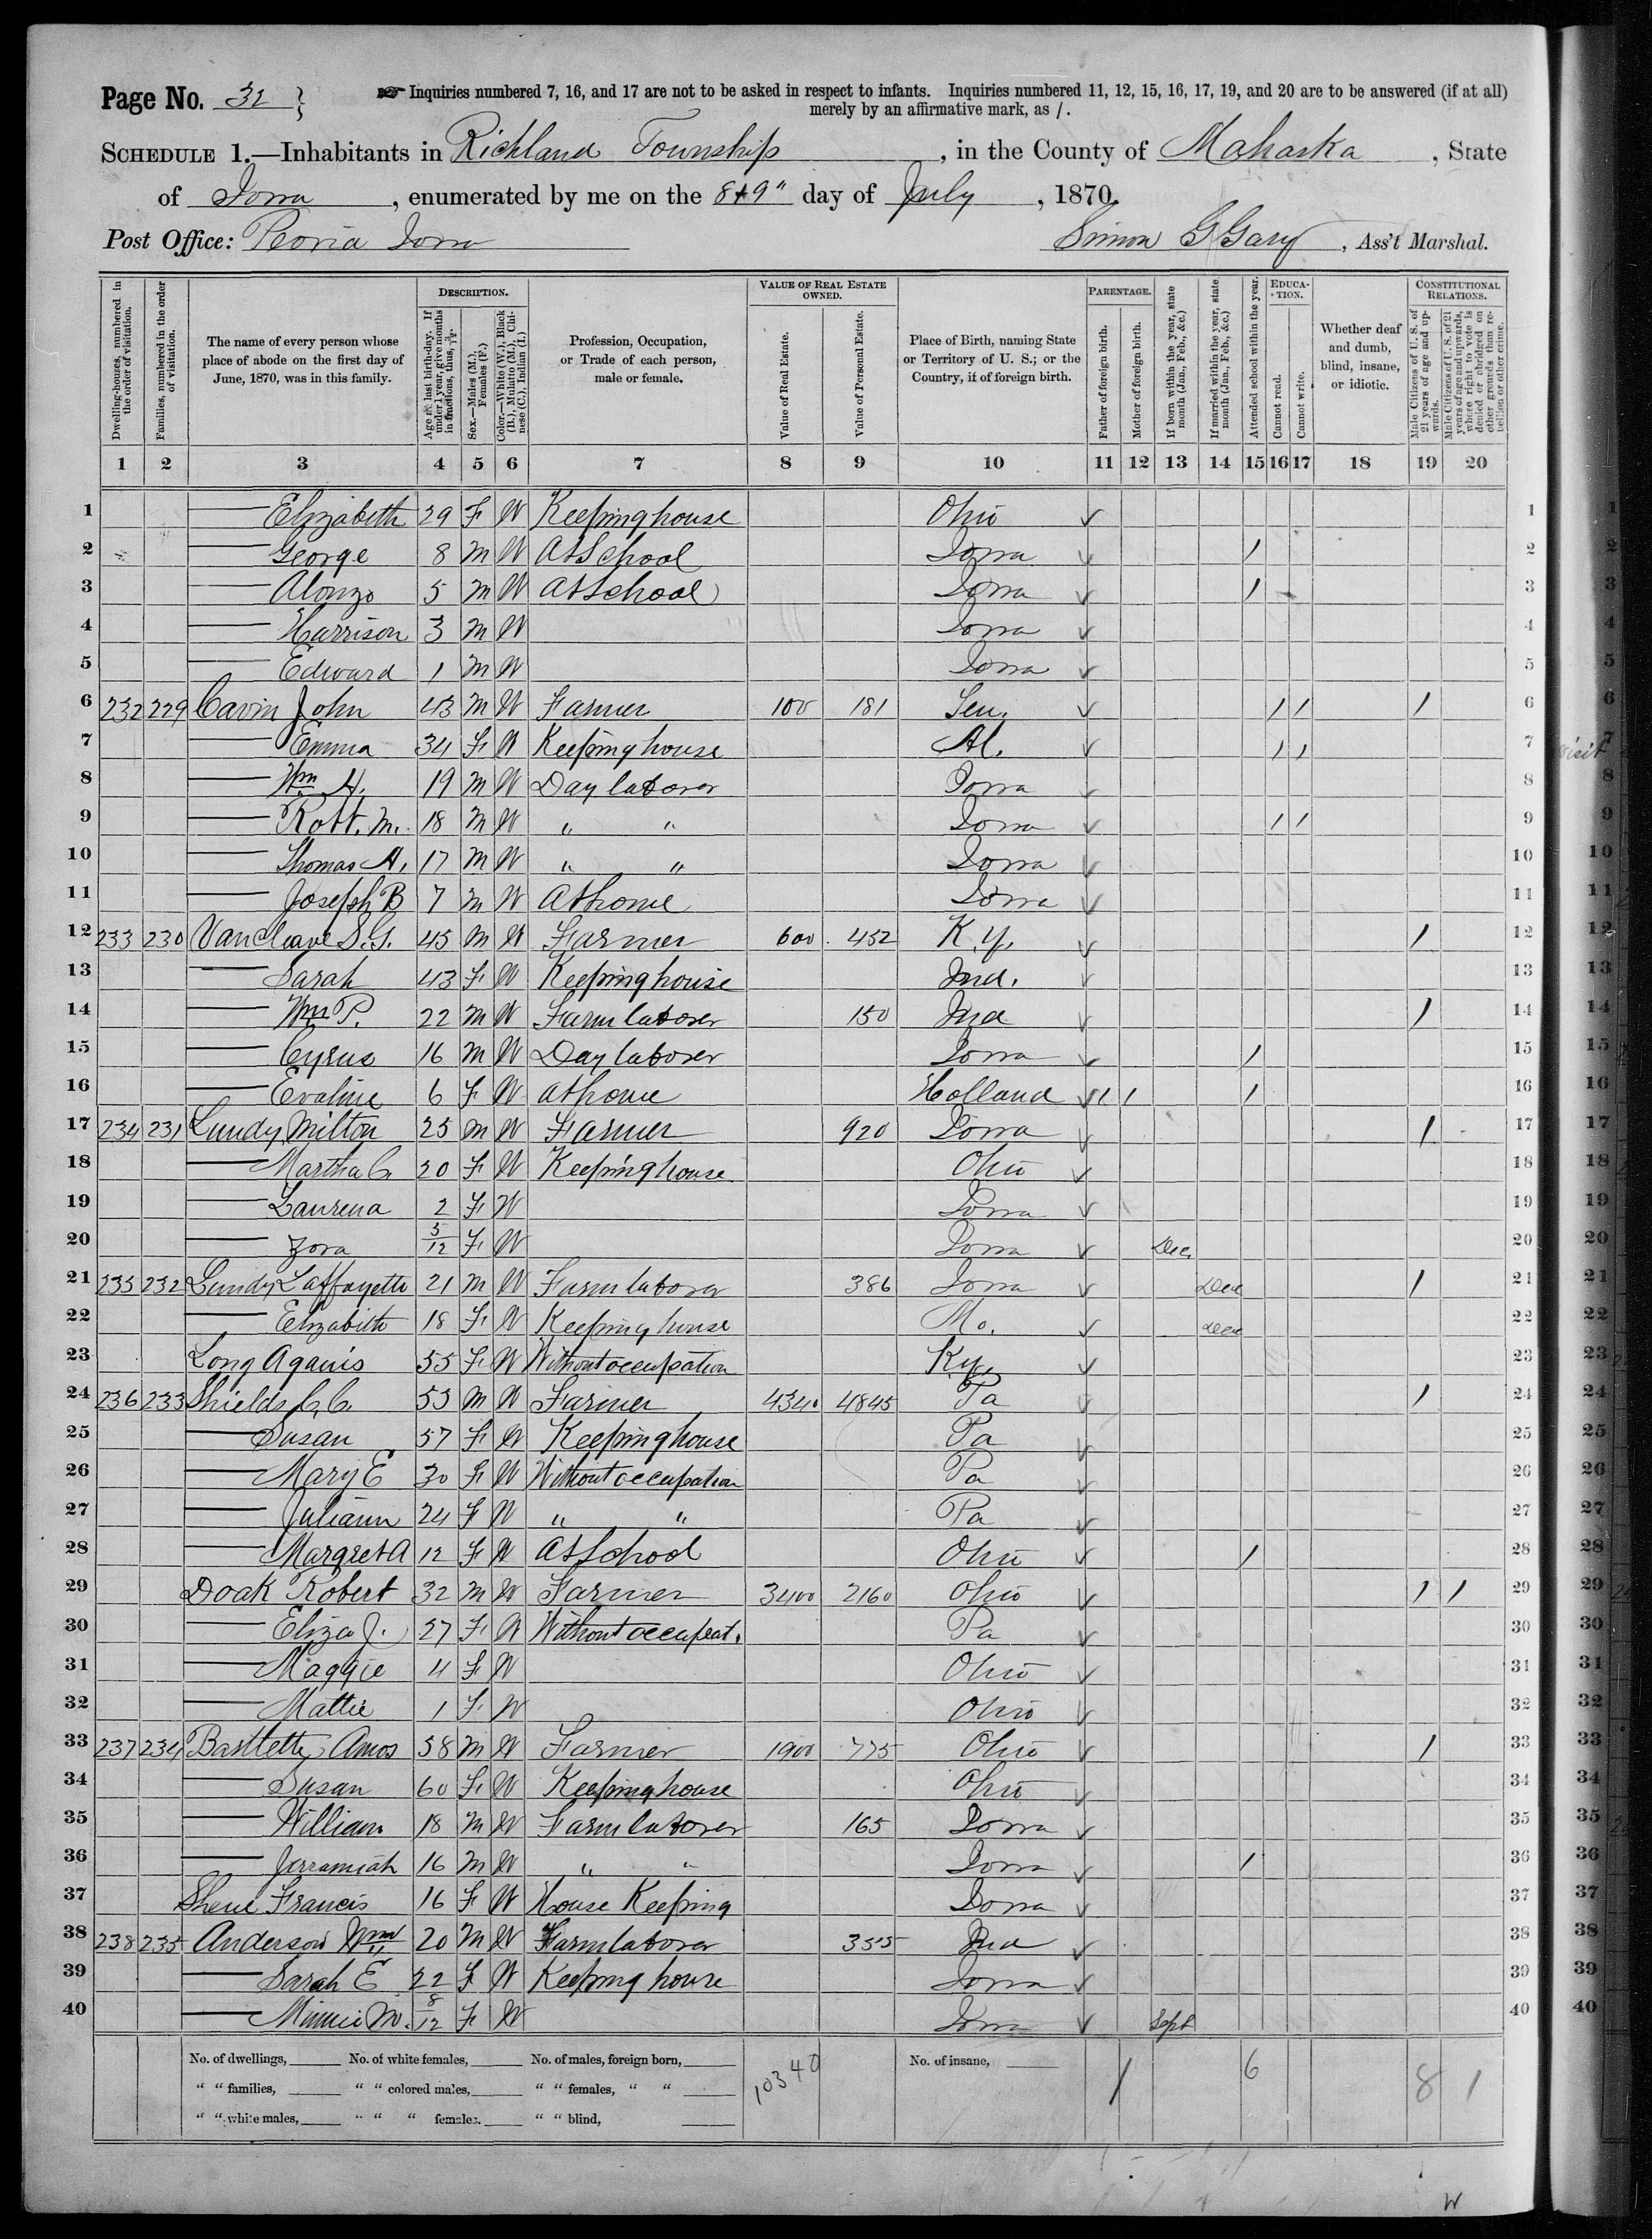 Page No. 32 } Inquiries numbered 7, 16, and 17 are not to be asked in respect to infants. Inquiries numbered 11, 12, 15, 16, 17, 19, and 20 are to be answered (if at all)
merely by an affirmative mark, as /.
SCHEDULE 1.—Inhabitants in Richland Township, in the County of Mahaska, State
of Iowa, enumerated by me on the 8+9" day of July, 1870.
Post Office: Peoria Iowa Simon G Gary, Ass't Marshal.
DESCRIPTION. VALUE OF REAL ESTATE OWNED. PARENTAGE. EDUCATION. CONSTITUTIONAL RELATIONS.
Dwelling-houses, numbered in the order of visitation.
Families, numbered in the order of visitation.
The name of every person whose place of abode on the first day of June, 1870, was in this family.
Age at last birth-day. If under 1 year, give months in fractions, thus, 3/12.
Sex.—Males (M.), Females (F.)
Color.—White (W.), Black (B.), Mulatto (M.), Chinese (C.), Indian (I.)
Profession, Occupation, or Trade of each person, male or female.
Value of Real Estate.
Value of Personal Estate.
Place of Birth, naming State or Territory of U. S.; or the Country, if of foreign birth.
Father of foreign birth.
Mother of foreign birth.
If born within the year, state month (Jan., Feb., &c.)
If married within the year, state month (Jan., Feb., &c.)
Attended school within the year.
Cannot read.
Cannot write.
Whether deaf and dumb, blind, insane, or idiotic.
Male Citizens of U. S. of 21 years of age and upwards.
Male Citizens of U. S. of 21 years of age and upwards, where right to vote is denied or abridged on other grounds than rebellion or other crime.
1 2 3 4 5 6 7 8 9 10 11 12 13 14 15 16 17 18 19 20
1 — Elizabeth 29 F W Keeping house Ohio 1
2 — George 8 M W At School Iowa / 2
3 — Alonzo 5 M W At School Iowa / 3
4 — Harrison 3 M W Iowa 4
5 — Edward 1 M W Iowa 5
6 232 229 Cavin John 43 M W Farmer 100 181 Ten. / / / 6
7 — Emma 34 F W Keeping house Al. / / 7
8 — Wm H. 19 M W Day laborer Iowa 8
9 — Robt. M. 18 M W " " Iowa / / 9
10 — Thomas A. 17 M W " " Iowa 10
11 — Joseph B 7 M W At home Iowa 11
12 233 230 VanCleave S.G. 45 M W Farmer 600 452 K.y. / 12
13 — Sarah 43 F W Keeping house Ind. 13
14 — Wm P. 22 M W Farm laborer 150 Ind / 14
15 — Cyrus 16 M W Day laborer Iowa / 15
16 — Evaline 6 F W at home Holland / / / 16
17 234 231 Lundy Milton 25 M W Farmer 920 Iowa / 17
18 — Martha C. 20 F W Keeping house Ohio 18
19 — Laurena 2 F W Iowa 19
20 — Zora 5/12 F W Iowa Dec. 20
21 235 232 Lundy Laffayette 21 M W Farm laborer 386 Iowa Dec / 21
22 — Elizabeth 18 F W Keeping house Mo. Dec 22
23 Long Aganis 55 F W Without occupation Ky. 23
24 236 233 Shields C.C. 53 M W Farmer 4340 4845 Pa / 24
25 — Susan 57 F W Keeping house Pa 25
26 — Mary E 30 F W Without occupation Pa 26
27 — Juliann 24 F W " " Pa 27
28 — Margret A 12 F W At School Ohio / 28
29 Doak Robert 32 M W Farmer 3400 2160 Ohio / / 29
30 — Eliza J. 27 F W Without occupat. Pa 30
31 — Maggie 4 F W Ohio 31
32 — Mattie 1 F W Ohio 32
33 237 234 Bartlett Amos 58 M W Farmer 1900 775 Ohio / 33
34 — Susan 60 F W Keeping house Ohio 34
35 — William 18 M W Farm laborer 165 Iowa 35
36 — Jerramiah 16 M W " " Iowa / 36
37 Francis 16 F W House Keeping Iowa 37
38 238 235 Anderson Wm 20 M W Farm laborer 355 Ind 38
39 — Sarah E 22 F W Keeping house Iowa 39
40 — Minnie M. 8/12 F W Iowa Sept 40
No. of dwellings, No. of white females, No. of males, foreign born, 10340 No. of insane, 1 6 8 1
" " families, " " colored males, " " females, " "
" " white males, " " " females, " " blind,